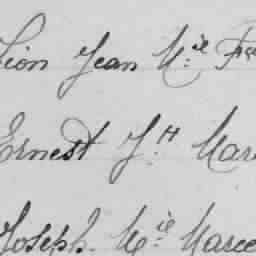 Léon Jean M.ie Fra
Ernest J.h Mar
Joseph. M.ie Marce